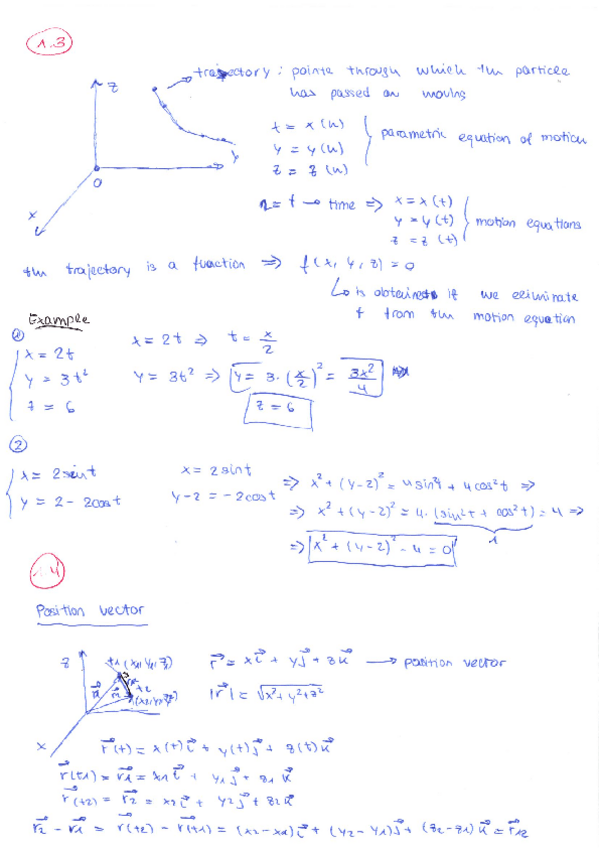 1.3
trajectory: points through which the particle
has passed on moving
z
y
x
0
t = x (u)
y = y (u)
z = z (u)
parametric equation of motion
u = t → time ⇒ x = x (t)
y = y (t)
z = z (t)
motion equations
the trajectory is a function ⇒ f (x, y, z) = 0
↳ is obtained if we eliminate
t from the motion equation
Example
①
x = 2t
y = 3t²
z = 6
x = 2t ⇒ t = x/2
y = 3t² ⇒ y = 3 · (x/2)² = 3x²/4
z = 6
②
x = 2 sin t
y = 2 - 2cos t
x = 2 sin t
y - 2 = - 2 cos t
⇒ x² + (y-2)² = 4 sin²t + 4 cos²t ⇒
⇒ x² + (y-2)² = 4 · (sin²t + cos²t) = 4 ⇒
1
⇒ x² + (y-2)² - 4 = 0
1.4
Position vector
z
x
t1 (x1, y1, z1)
t2
r⃗ = x i⃗ + y j⃗ + z k⃗ → position vector
|r⃗| = √x² + y² + z²
r⃗(t) = x(t) i⃗ + y(t) j⃗ + z(t) k⃗
r⃗(t1) = r⃗1 = x1 i⃗ + y1 j⃗ + z1 k⃗
r⃗(t2) = r⃗2 = x2 i⃗ + y2 j⃗ + z2 k⃗
r⃗2 - r⃗1 = r⃗(t2) - r⃗(t1) = (x2-x1) i⃗ + (y2-y1) j⃗ + (z2-z1) k⃗ = r⃗12